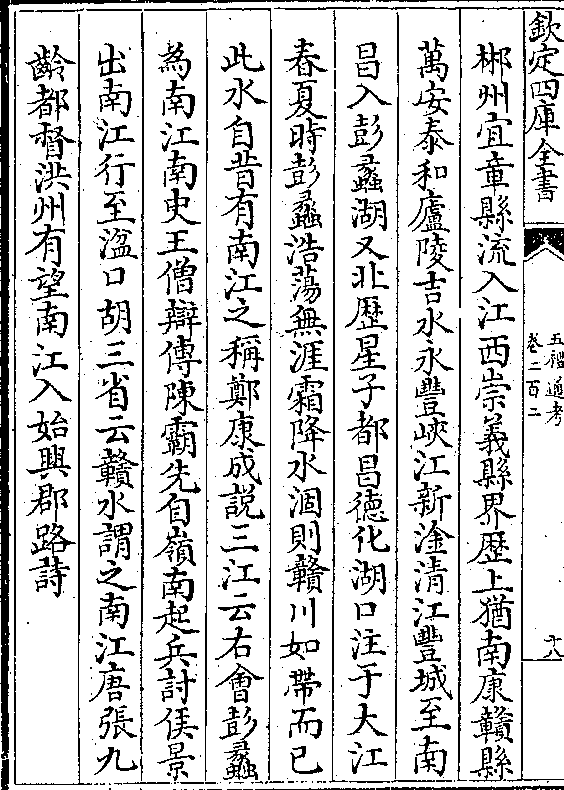 欽定四庫全書
五禮通考
卷二百二
十八
郴州宜章縣流入江西崇義縣界歴上猶南康贛縣
萬安泰和廬陵吉水永豐峽江新淦清江豐城至南
昌入彭蠡湖又北歴星子都昌德化湖口注于大江
春夏時彭蠡浩蕩無涯霜降水涸則贛川如帶而已
此水自昔有南江之稱鄭康成説三江云右會彭蠡
為南江南史王僧辯傳陳霸先自嶺南起兵討侯景
出南江行至湓口胡三省云贛水謂之南江唐張九
齡都督洪州有望南江入始興郡路詩